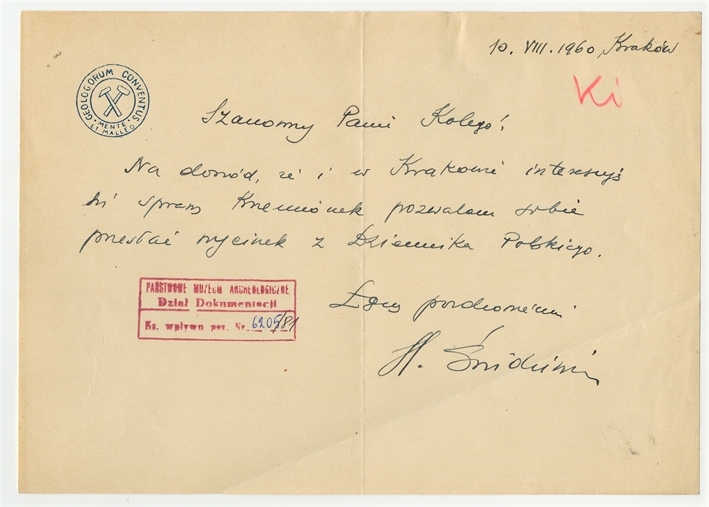 10. VIII. 1960, Kraków
Ki
GEOLOGORUM CONVENTUS
MENTE ET MALLEO
Szanowny Panie Kolego!
Na dowód, że i w Krakowie interesują
się sprawą Krzemionek pozwalam sobie
przesłać wycinek z Dziennika Polskiego.
PAŃSTWOWE MUZEUM ARCHEOLOGICZNE
Dział Dokumentacji
Ks. wpływu poz. Nr. 6205/81
Łączę pozdrowienia